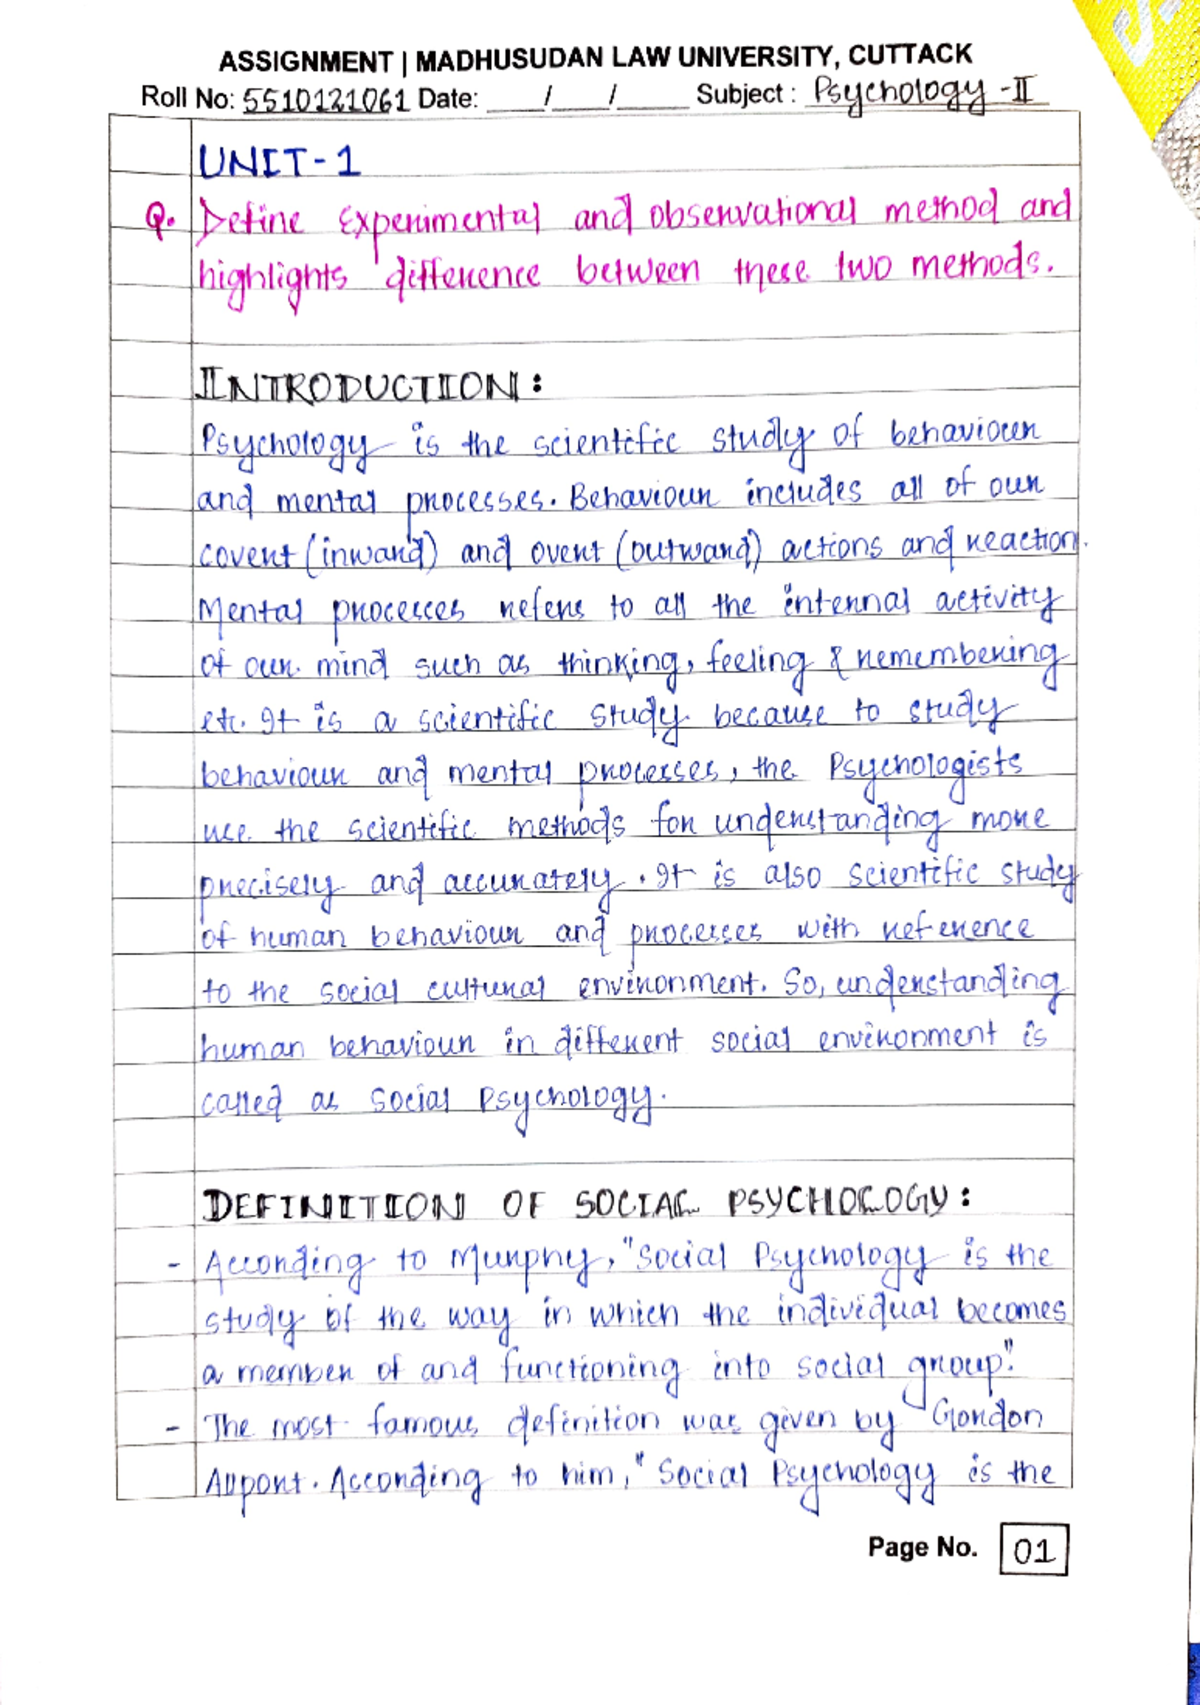 ASSIGNMENT | MADHUSUDAN LAW UNIVERSITY, CUTTACK
Roll No: 5510121061 Date: ___/___/___ Subject : Psychology -II
UNIT-1
Q. Define Experimental and observational method and
highlights difference between these two methods.
INTRODUCTION:
Psychology is the scientific study of behaviour
and mental processes. Behaviour includes all of our
covert (inward) and overt (outward) actions and reaction.
Mental processes refers to all the internal activity
of our mind such as thinking, feeling & remembering
etc. It is a scientific study because to study
behaviour and mental processes, the Psychologists
use the scientific methods for understanding more
precisely and accurately. It is also scientific study
of human behaviour and processes with reference
to the social cultural environment. So, understanding
human behaviour in different social environment is
called as social Psychology.
DEFINITION OF SOCIAL PSYCHOLOGY:
- According to Murphy, "Social Psychology is the
study of the way in which the individual becomes
a member of and functioning into social group."
- The most famous definition was given by Gordon
Allport. According to him, "Social Psychology is the
Page No. 01